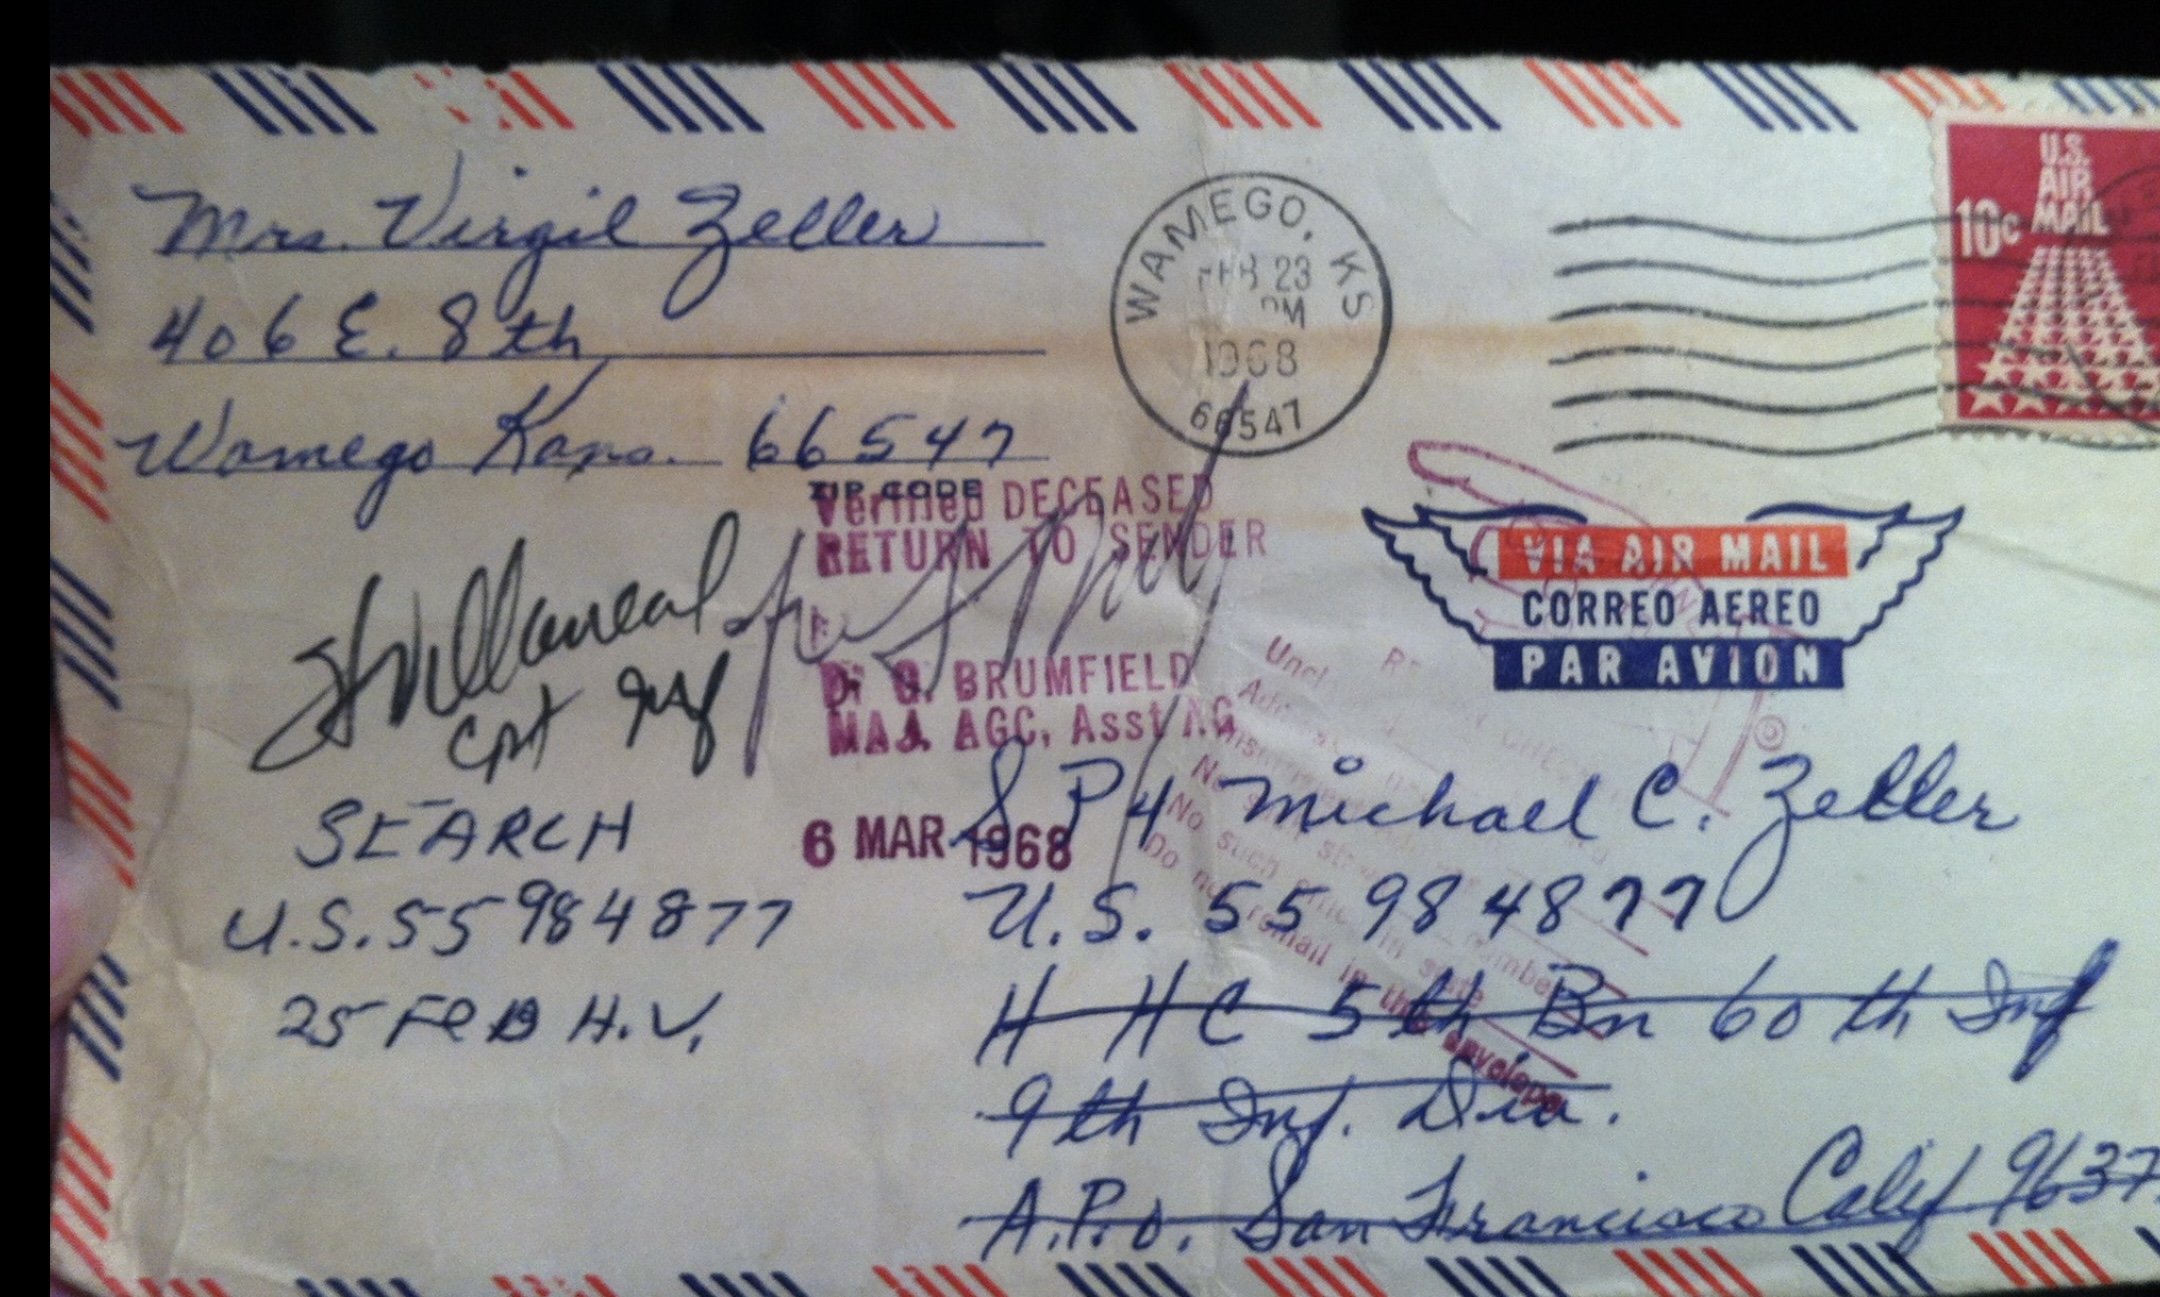 Mrs. Virgil Zeller
406 E. 8th
Wamego Kans. 66547
ZIP CODE
WAMEGO, KS
FEB 23
PM
1968
66547
U.S.
AIR
MAIL
10c
Verified DECEASED
RETURN TO SENDER
VIA AIR MAIL
CORREO AEREO
PAR AVION
Villarreal
Cpt Inf
BRUMFIELD
MAJ. AGC, Asst AG
6 MAR 1968
SEARCH
U.S. 55984877
25 FEB H.V.
SP4 Michael C. Zeller
U.S. 55 984877
H H C 5th Bn 60th Inf
9th Inf. Div.
A.P.O. San Francisco Calif 9637
No such office in state
Do not remail in this envelope